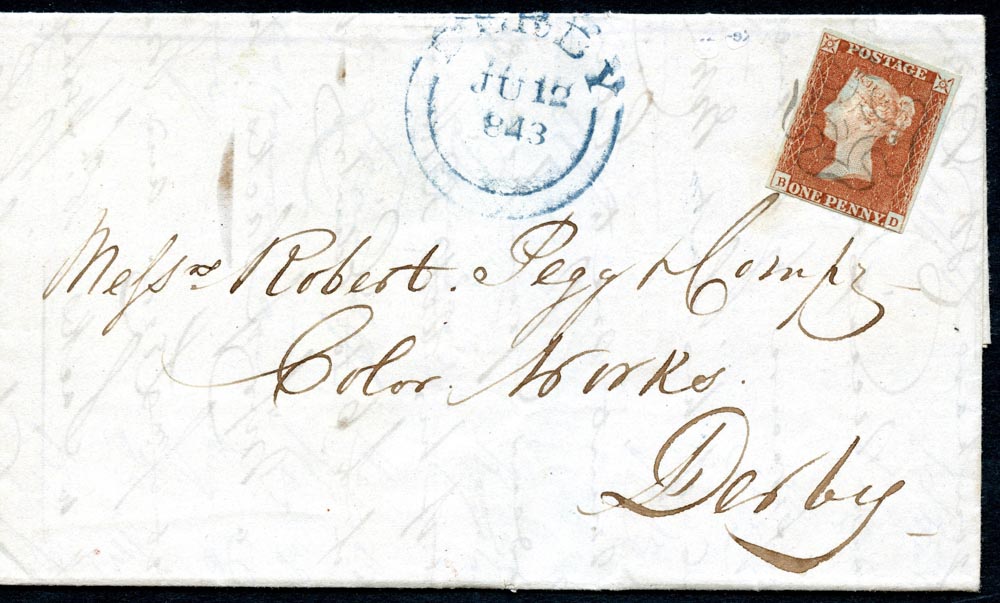 JU 12
843
POSTAGE
ONE PENNY
B D
Messrs Robert Pegg & Compy
Color Works.
Derby